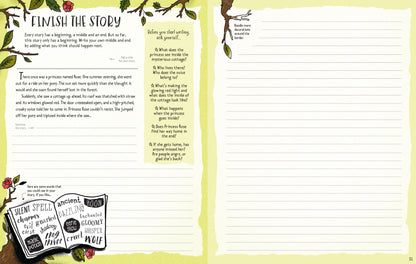 FINISH THE STORY
Every story has a beginning, a middle and an end. But so far,
this story only has a beginning. Write your own middle and end
by adding what you think should happen next.
There once was a princess named Rose. One summer evening, she went
out for a ride on her pony. The sun set more quickly than she thought it
would and she soon found herself lost in the forest.
Suddenly, she saw a cottage up ahead. Its roof was thatched with straw
and its windows glowed red. The door creaked open, and a high-pitched,
croaky voice told her to come in. Princess Rose couldn't resist. She jumped
off her pony and tiptoed inside where she saw...
Before you start writing,
ask yourself...
Q. What does the
princess see inside the
mysterious cottage?
Q. Who lives there?
Who does the voice
belong to?
Q. What's making the
glowing red light and
what does the inside of
the cottage look like?
Q. What happens
when the princess
goes inside?
Q. Does Princess Rose
find her way home in
the end?
Q. If she gets home, has
anyone missed her?
Are people angry, or
glad she's back?
Here are some words that
you could use in your
story, if you like...
SILENT SPELL
charming
curse
magic
potion
ancient
DAZZLING
MOON
Enchanted
GLOOMY
WHISPER
WOLF
Doodle more
decorations
around the
border.
51